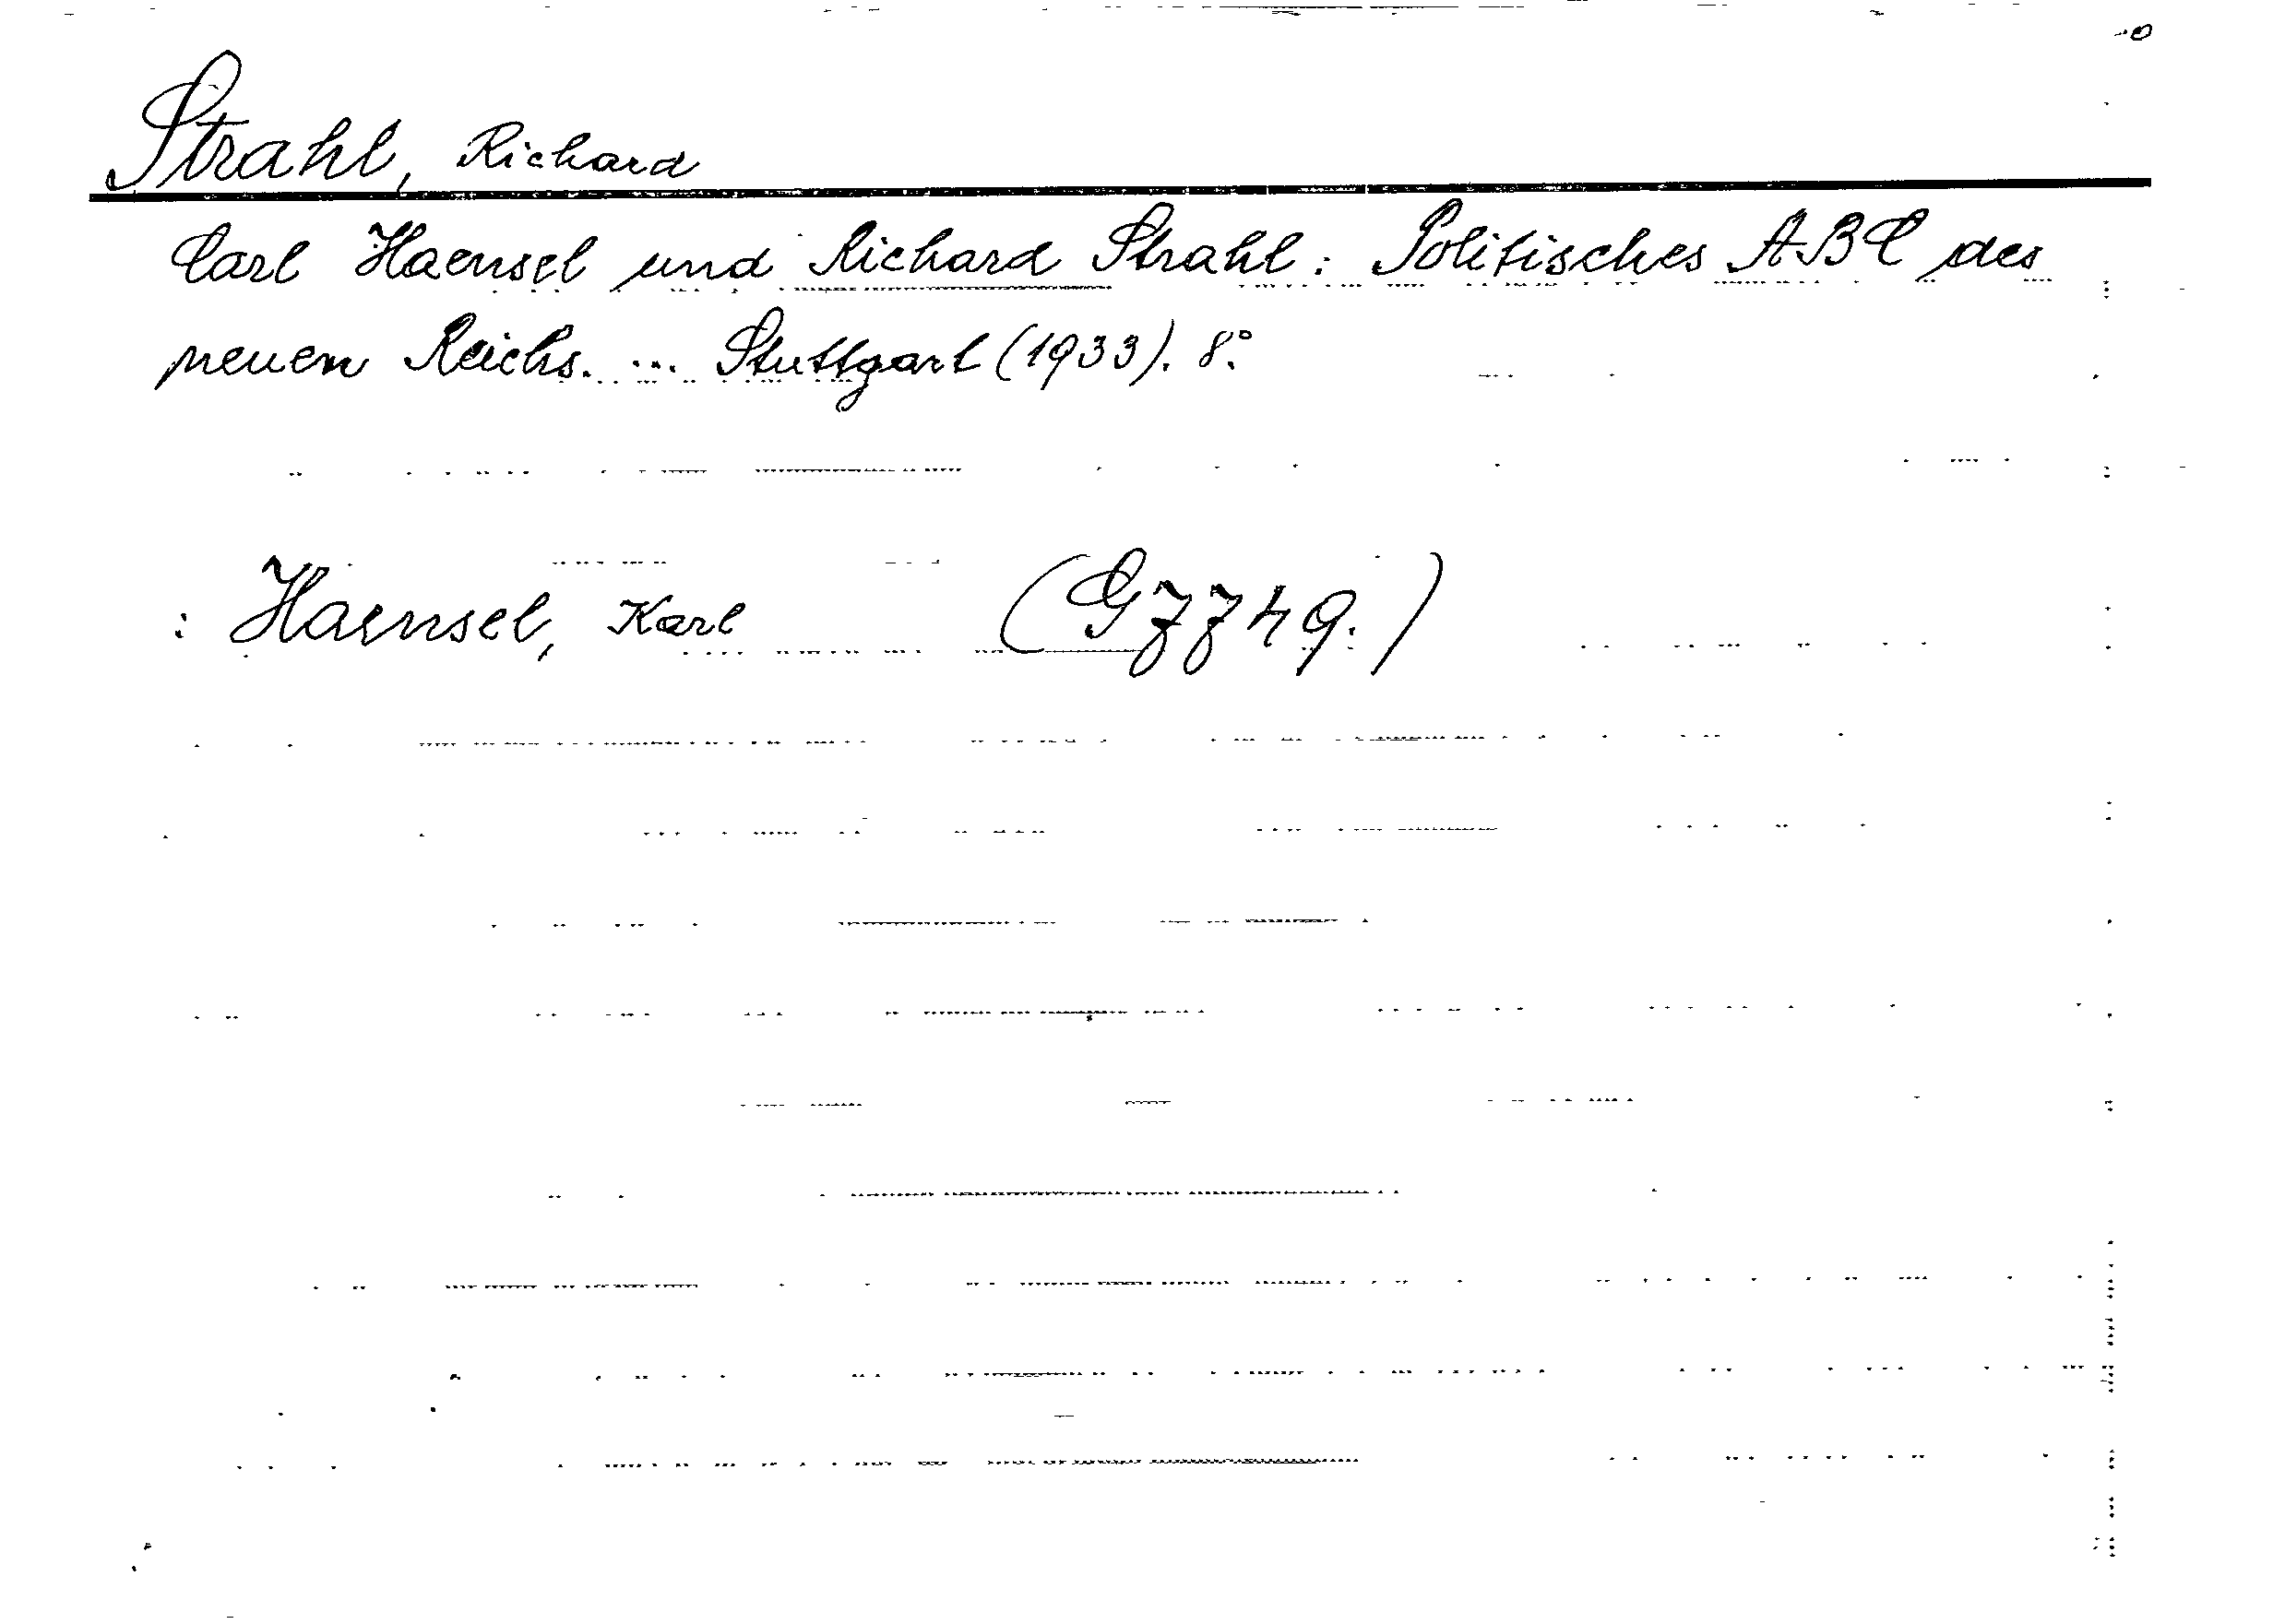 Strahl, Richard
Carl Haensel und Richard Strahl: Politisches ABC des
neuen Reichs. ... Stuttgart (1933). 8°.
: Haensel, Karl (Gzz49.)